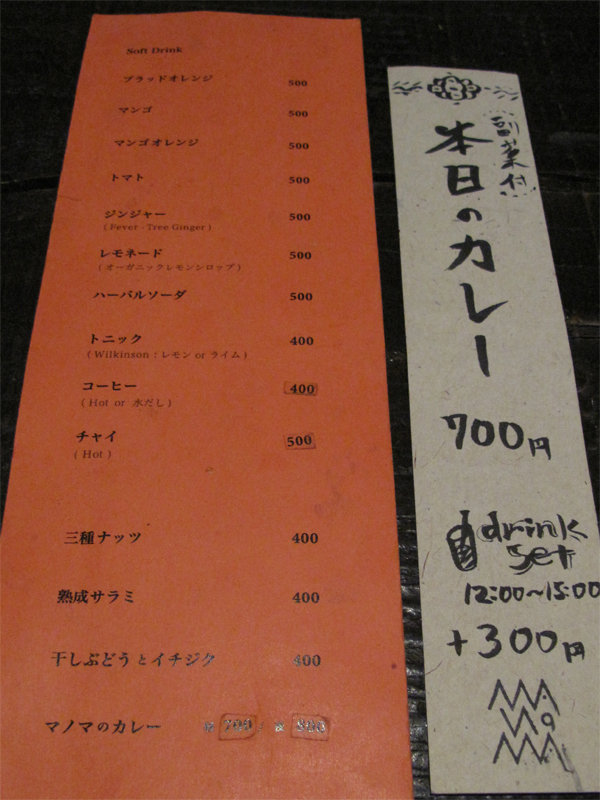 Soft Drink
ブラッドオレンジ 500
マンゴ 500
マンゴオレンジ 500
トマト 500
ジンジャー 500
( Fever - Tree Ginger )
レモネード 500
( オーガニックレモンシロップ )
ハーバルソーダ 500
トニック 400
( Wilkinson : レモン or ライム )
コーヒー 400
( Hot or 水だし )
チャイ 500
( Hot )
三種ナッツ 400
熟成サラミ 400
干しぶどうとイチジク 400
マノマのカレー 昼 700 / 夜 800
副菜付
本日のカレー
700円
drink
set
12:00~15:00
+300円
MA
NO
MA